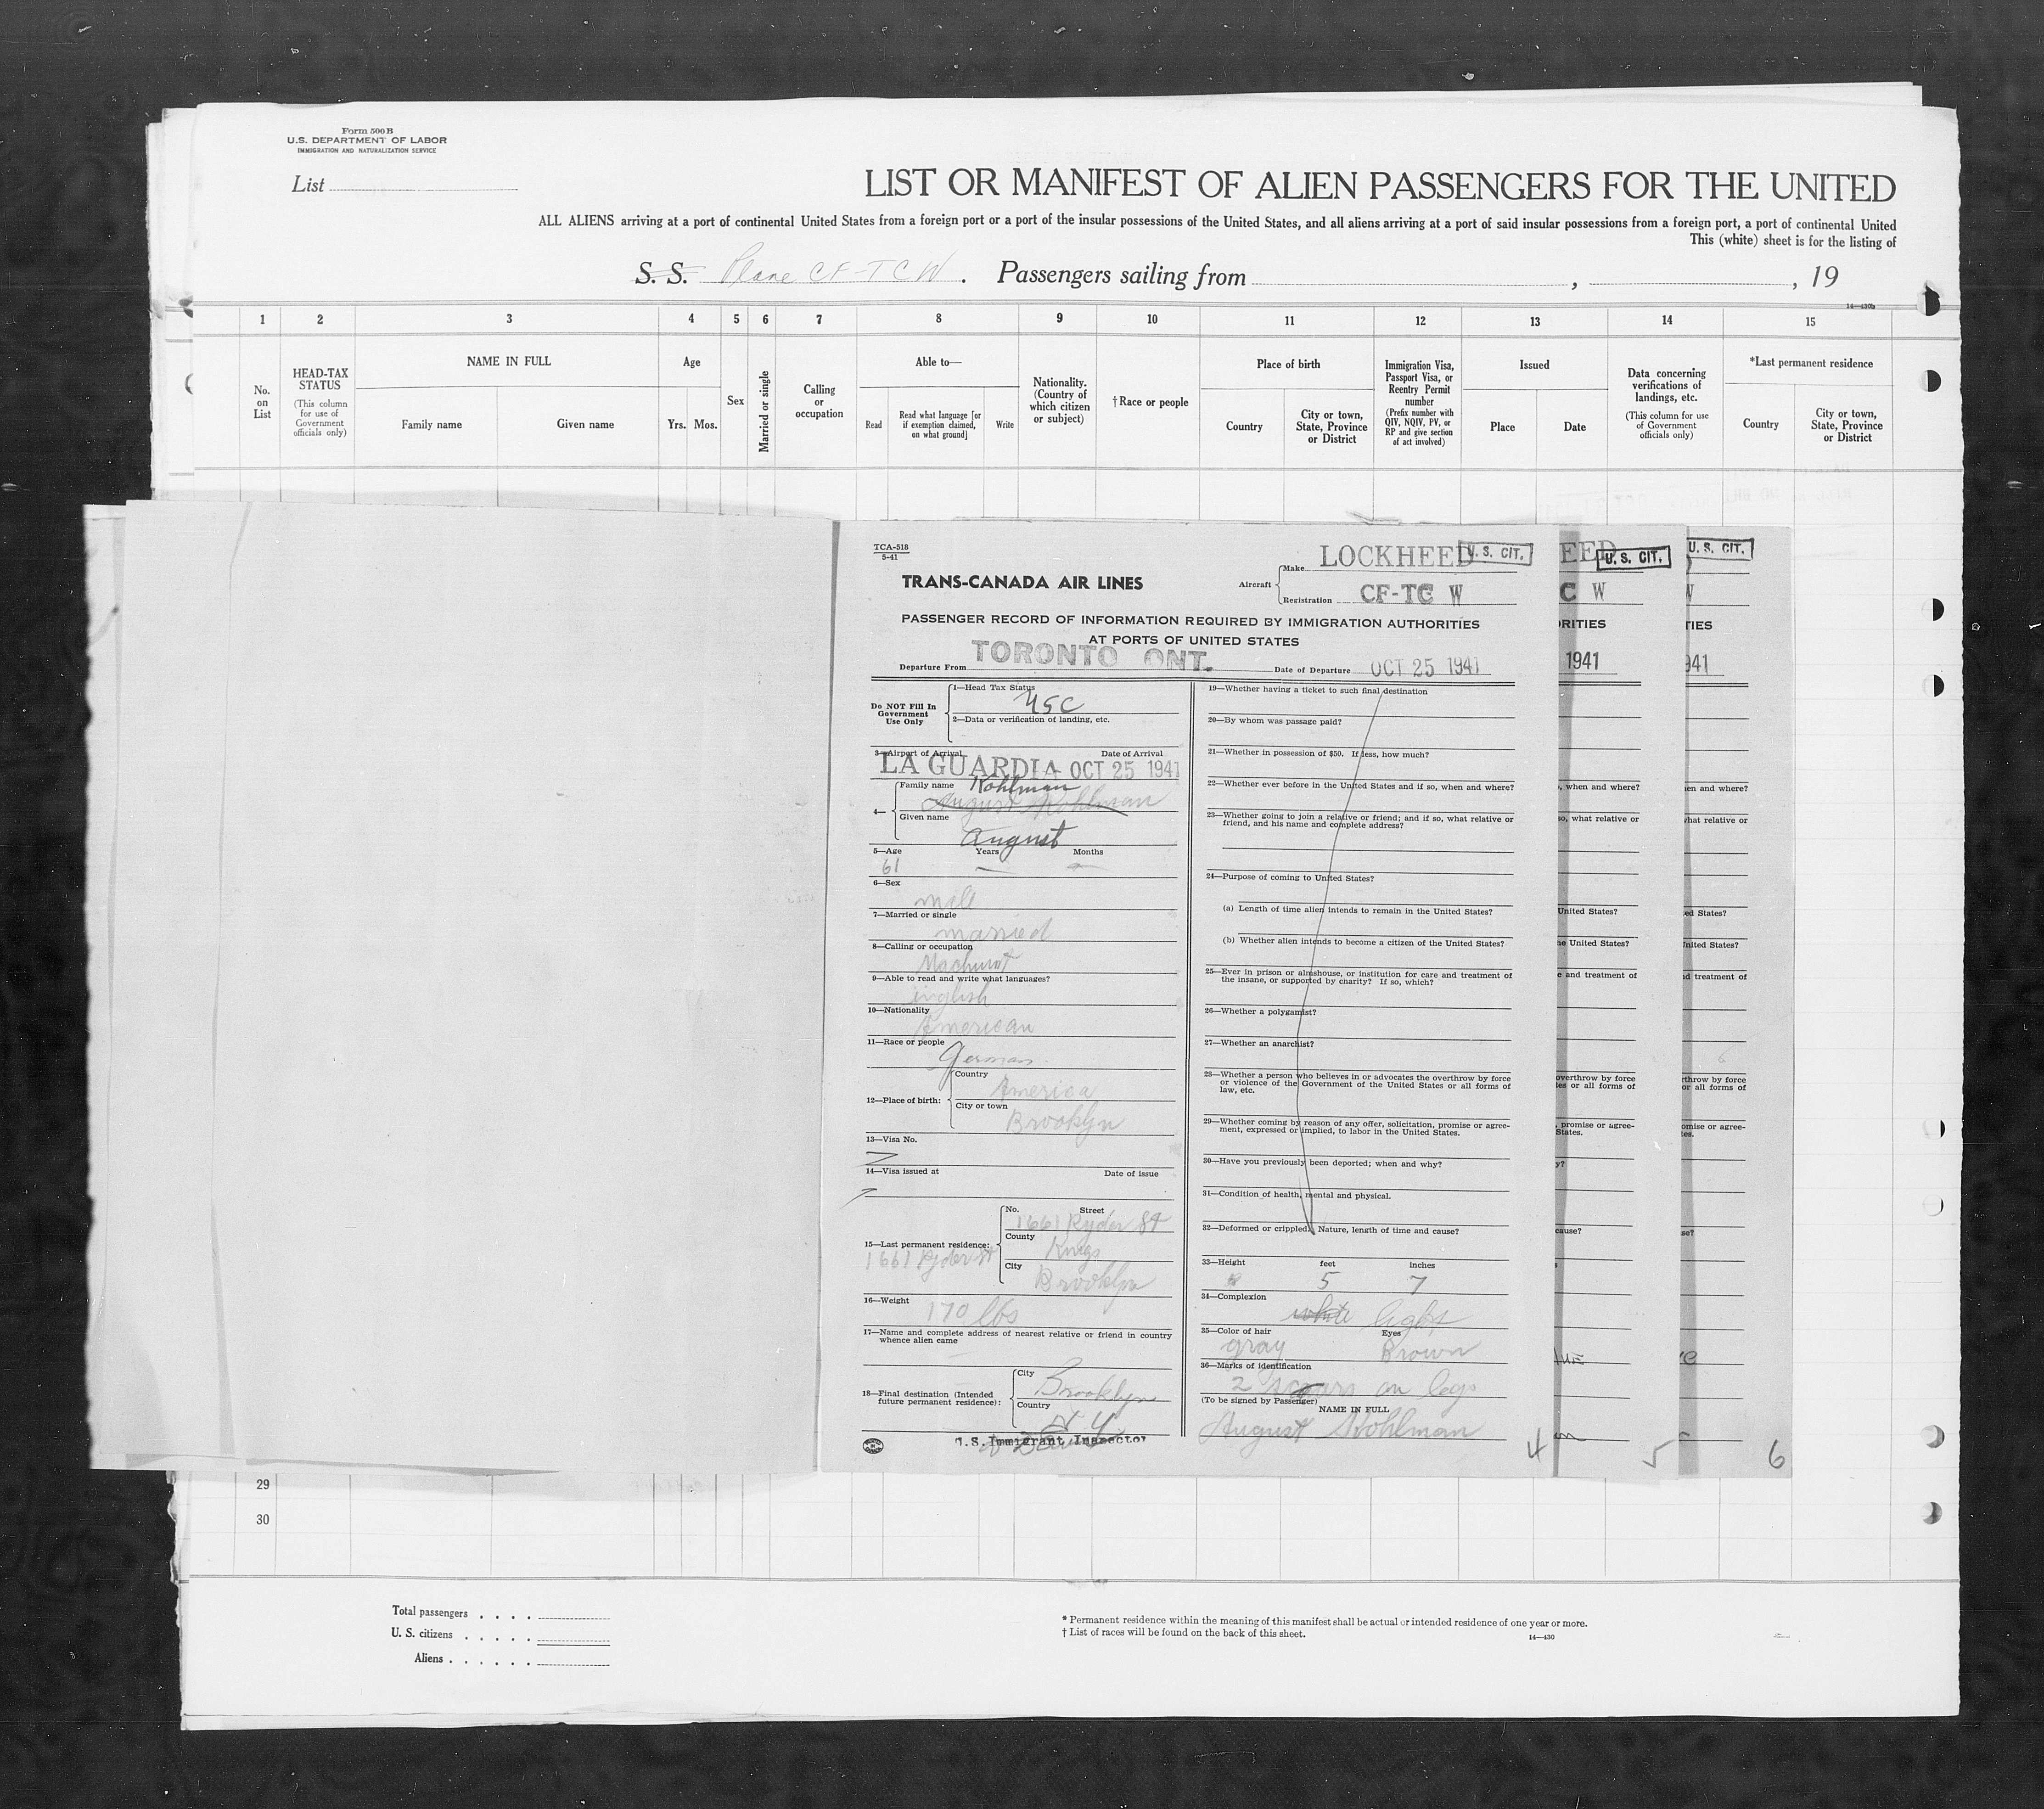 Form 500 B
U.S. DEPARTMENT OF LABOR
IMMIGRATION AND NATURALIZATION SERVICE
List
LIST OR MANIFEST OF ALIEN PASSENGERS FOR THE UNITED
ALL ALIENS arriving at a port of continental United States from a foreign port or a port of the insular possessions of the United States, and all aliens arriving at a port of said insular possessions from a foreign port, a port of continental United
This (white) sheet is for the listing of
S. S. Plane CF-TCW. Passengers sailing from , , 19
14—430b
1 2 3 4 5 6 7 8 9 10 11 12 13 14 15
No. on List
HEAD-TAX STATUS
(This column for use of Government officials only)
NAME IN FULL
Family name Given name
Age
Yrs. Mos.
Sex
Married or single
Calling or occupation
Able to—
Read
Read what language [or if exemption claimed, on what ground]
Write
Nationality. (Country of which citizen or subject)
†Race or people
Place of birth
Country
City or town, State, Province or District
Immigration Visa, Passport Visa, or Reentry Permit number
(Prefix number with QIV, NQIV, PV, or RP and give section of act involved)
Issued
Place Date
Data concerning verifications of landings, etc.
(This column for use of Government officials only)
*Last permanent residence
Country
City or town, State, Province or District
TCA-518
5-41
TRANS-CANADA AIR LINES
Aircraft
Make LOCKHEED
U. S. CIT.
Registration CF-TC W
PASSENGER RECORD OF INFORMATION REQUIRED BY IMMIGRATION AUTHORITIES
AT PORTS OF UNITED STATES
Departure From TORONTO ONT. Date of Departure OCT 25 1941
Do NOT Fill In Government Use Only
1—Head Tax Status
USC
2—Data or verification of landing, etc.
3—Airport of Arrival Date of Arrival
LA GUARDIA OCT 25 1941
4—
Family name Kohlman
August Kohlman
Given name
August
5—Age Years Months
61 — —
6—Sex
male
7—Married or single
married
8—Calling or occupation
Machinist
9—Able to read and write what languages?
english
10—Nationality
American
11—Race or people
German
12—Place of birth:
Country
America
City or town
Brooklyn
13—Visa No.
14—Visa issued at Date of issue
15—Last permanent residence:
1661 Ryder St
No. Street
1661 Ryder St
County
Kings
City
Brooklyn
16—Weight
170 lbs
17—Name and complete address of nearest relative or friend in country
whence alien came
—
18—Final destination (Intended
future permanent residence):
City
Brooklyn
Country
N Y
U.S. Immigrant Inspector
19—Whether having a ticket to such final destination
20—By whom was passage paid?
21—Whether in possession of $50. If less, how much?
22—Whether ever before in the United States and if so, when and where?
23—Whether going to join a relative or friend; and if so, what relative or
friend, and his name and complete address?
24—Purpose of coming to United States?
(a) Length of time alien intends to remain in the United States?
(b) Whether alien intends to become a citizen of the United States?
25—Ever in prison or almshouse, or institution for care and treatment of
the insane, or supported by charity? If so, which?
26—Whether a polygamist?
27—Whether an anarchist?
28—Whether a person who believes in or advocates the overthrow by force
or violence of the Government of the United States or all forms of
law, etc.
29—Whether coming by reason of any offer, solicitation, promise or agree-
ment, expressed or implied, to labor in the United States.
30—Have you previously been deported; when and why?
31—Condition of health, mental and physical.
32—Deformed or crippled. Nature, length of time and cause?
33—Height feet inches
5 7
34—Complexion
white light
35—Color of hair Eyes
gray Brown
36—Marks of identification
2 scars on legs
(To be signed by Passenger)
NAME IN FULL
August Kohlman
4
EED
U. S. CIT.
C W
RITIES
1941
, when and where?
so, what relative or
United States?
he United States?
e and treatment of
overthrow by force
tes or all forms of
, promise or agree-
States.
y?
cause?
5
U. S. CIT.
W
TIES
941
en and where?
hat relative or
ed States?
nited States?
d treatment of
throw by force
or all forms of
omise or agree-
tes.
se?
6
29
30
Total passengers . . . .
U. S. citizens . . . . .
Aliens . . . . . .
* Permanent residence within the meaning of this manifest shall be actual or intended residence of one year or more.
† List of races will be found on the back of this sheet.
14—430